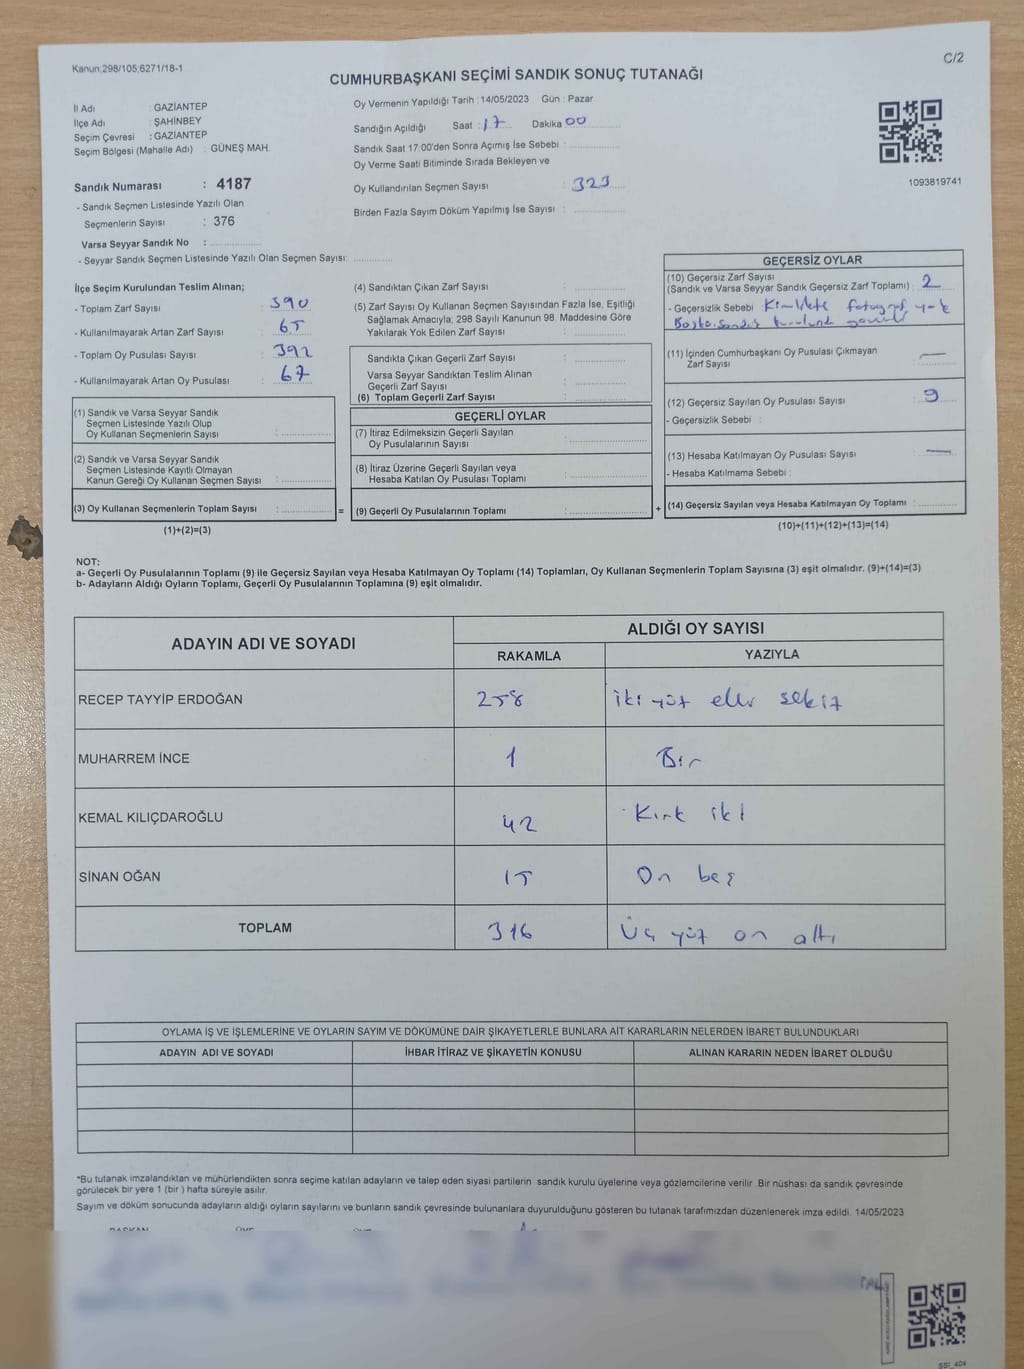 Kanun:298/105,6271/18-1
C/2
CUMHURBAŞKANI SEÇİMİ SANDIK SONUÇ TUTANAĞI
İl Adı : GAZİANTEP
İlçe Adı : ŞAHİNBEY
Seçim Çevresi : GAZİANTEP
Seçim Bölgesi (Mahalle Adı) : GÜNEŞ MAH.
Sandık Numarası : 4187
- Sandık Seçmen Listesinde Yazılı Olan
Seçmenlerin Sayısı : 376
Varsa Seyyar Sandık No :
- Seyyar Sandık Seçmen Listesinde Yazılı Olan Seçmen Sayısı:
Oy Vermenin Yapıldığı Tarih : 14/05/2023 Gün : Pazar
Sandığın Açıldığı Saat : 17 Dakika 00
Sandık Saat 17:00'den Sonra Açımış İse Sebebi :
Oy Verme Saati Bitiminde Sırada Bekleyen ve
Oy Kullandırılan Seçmen Sayısı : 323
Birden Fazla Sayım Döküm Yapılmış İse Sayısı :
1093819741
İlçe Seçim Kurulundan Teslim Alınan;
- Toplam Zarf Sayısı : 390
- Kullanılmayarak Artan Zarf Sayısı : 65
- Toplam Oy Pusulası Sayısı : 392
- Kullanılmayarak Artan Oy Pusulası : 67
(1) Sandık ve Varsa Seyyar Sandık
Seçmen Listesinde Yazılı Olup
Oy Kullanan Seçmenlerin Sayısı :
(2) Sandık ve Varsa Seyyar Sandık
Seçmen Listesinde Kayıtlı Olmayan
Kanun Gereği Oy Kullanan Seçmen Sayısı :
(3) Oy Kullanan Seçmenlerin Toplam Sayısı :
(1)+(2)=(3)
=
(4) Sandıktan Çıkan Zarf Sayısı :
(5) Zarf Sayısı Oy Kullanan Seçmen Sayısından Fazla İse, Eşitliği
Sağlamak Amacıyla, 298 Sayılı Kanunun 98. Maddesine Göre
Yakılarak Yok Edilen Zarf Sayısı :
Sandıkta Çıkan Geçerli Zarf Sayısı :
Varsa Seyyar Sandıktan Teslim Alınan
Geçerli Zarf Sayısı :
(6) Toplam Geçerli Zarf Sayısı :
GEÇERLİ OYLAR
(7) İtiraz Edilmeksizin Geçerli Sayılan
Oy Pusulalarının Sayısı :
(8) İtiraz Üzerine Geçerli Sayılan veya
Hesaba Katılan Oy Pusulası Toplamı :
(9) Geçerli Oy Pusulalarının Toplamı :
+
GEÇERSİZ OYLAR
(10) Geçersiz Zarf Sayısı
(Sandık ve Varsa Seyyar Sandık Geçersiz Zarf Toplamı) : 2
- Geçersizlik Sebebi : Kimlikte fotoğraf yok
Başka sandık
(11) İçinden Cumhurbaşkanı Oy Pusulası Çıkmayan
Zarf Sayısı : —
(12) Geçersiz Sayılan Oy Pusulası Sayısı : 9
- Geçersizlik Sebebi :
(13) Hesaba Katılmayan Oy Pusulası Sayısı : —
- Hesaba Katılmama Sebebi :
(14) Geçersiz Sayılan veya Hesaba Katılmayan Oy Toplamı :
(10)+(11)+(12)+(13)=(14)
NOT:
a- Geçerli Oy Pusulalarının Toplamı (9) ile Geçersiz Sayılan veya Hesaba Katılmayan Oy Toplamı (14) Toplamları, Oy Kullanan Seçmenlerin Toplam Sayısına (3) eşit olmalıdır. (9)+(14)=(3)
b- Adayların Aldığı Oyların Toplamı, Geçerli Oy Pusulalarının Toplamına (9) eşit olmalıdır.
ADAYIN ADI VE SOYADI
ALDIĞI OY SAYISI
RAKAMLA YAZIYLA
RECEP TAYYİP ERDOĞAN 258 iki yüz elli sekiz
MUHARREM İNCE 1 Bir
KEMAL KILIÇDAROĞLU 42 Kırk iki
SİNAN OĞAN 15 On beş
TOPLAM 316 Üç yüz on altı
OYLAMA İŞ VE İŞLEMLERİNE VE OYLARIN SAYIM VE DÖKÜMÜNE DAİR ŞİKAYETLERLE BUNLARA AİT KARARLARIN NELERDEN İBARET BULUNDUKLARI
ADAYIN ADI VE SOYADI İHBAR İTİRAZ VE ŞİKAYETİN KONUSU ALINAN KARARIN NEDEN İBARET OLDUĞU
*Bu tutanak imzalandıktan ve mühürlendikten sonra seçime katılan adayların ve talep eden siyasi partilerin sandık kurulu üyelerine veya gözlemcilerine verilir. Bir nüshası da sandık çevresinde
görülecek bir yere 1 (bir ) hafta süreyle asılır.
Sayım ve döküm sonucunda adayların aldığı oyların sayılarını ve bunların sandık çevresinde bulunanlara duyurulduğunu gösteren bu tutanak tarafımızdan düzenlenerek imza edildi. 14/05/2023
BAŞKAN ÜYE ÜYE
SSI_404